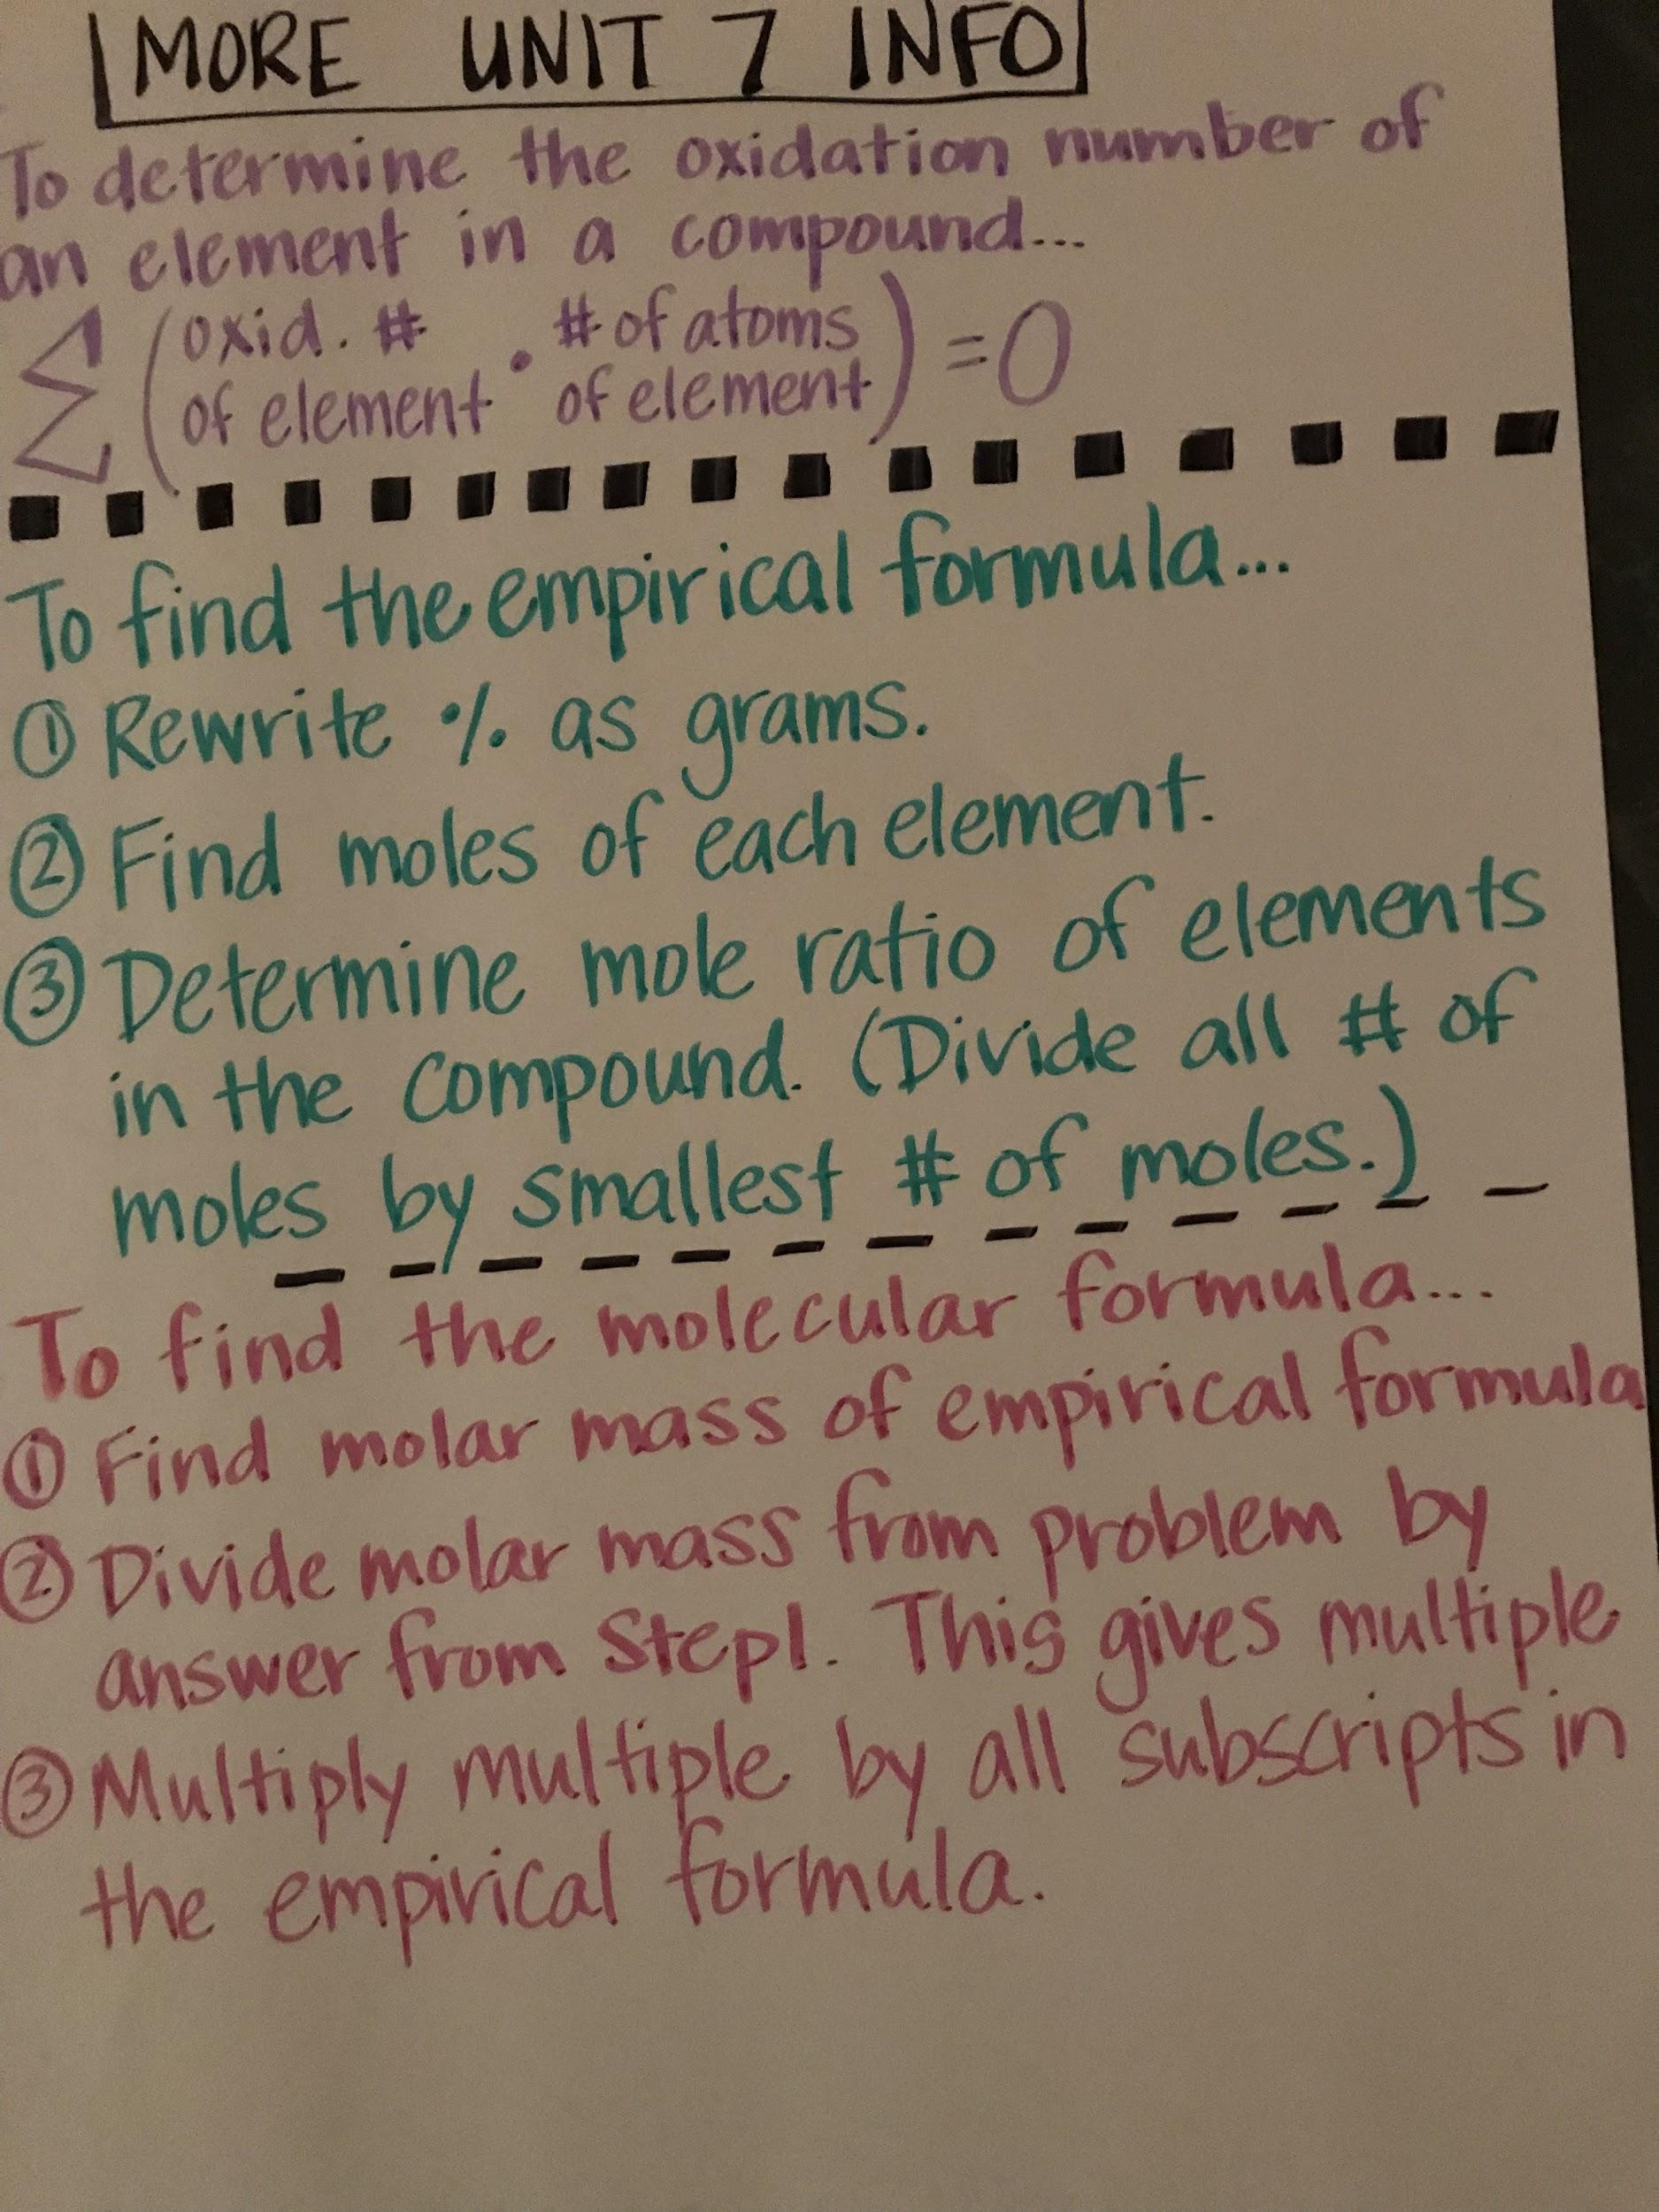 MORE UNIT 7 INFO
To determine the oxidation number of
an element in a compound...
Σ (oxid. # of element • # of atoms of element) = 0
To find the empirical formula...
① Rewrite % as grams.
② Find moles of each element.
③ Determine mole ratio of elements
in the compound. (Divide all # of
moles by smallest # of moles.)
To find the molecular formula...
① Find molar mass of empirical formula
② Divide molar mass from problem by
answer from Step 1. This gives multiple
③ Multiply multiple by all subscripts in
the empirical formula.